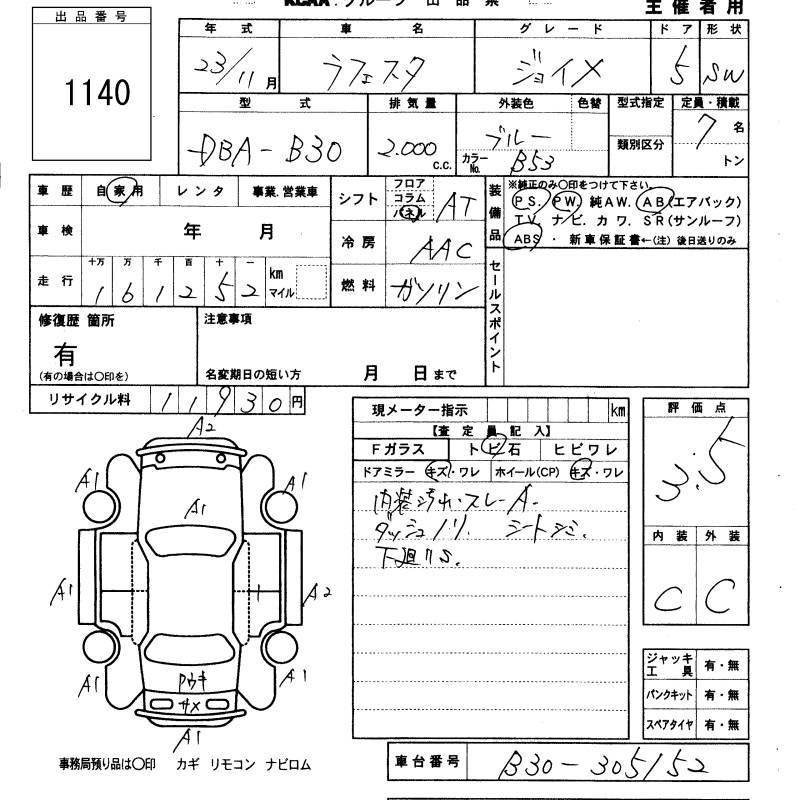 KCAA・グループ 出品票
主催者用
出品番号
1140
年式 車名 グレード ドア 形状
23/11月 ラフェスタ ジョイメ 5 SW
型式 排気量 外装色 色替 型式指定 定員・積載
DBA-B30 2.000 c.c. ブルー カラーNo. B53 類別区分 7名 トン
車歴 自家用 レンタ 事業.営業車
シフト フロア コラム パネル AT
装備品 ※純正のみ○印をつけて下さい。
P S. P W. 純A W. A B(エアバック)
T V. ナ ビ. カ ワ. S R(サンルーフ)
ABS ・ 新車保証書←(注)後日送りのみ
車検 年 月
冷房 AAC
走行 十万 万 千 百 十 一
1 6 1 2 5 2 km マイル
燃料 ガソリン
セールスポイント
修復歴 箇所
有
(有の場合は○印を)
注意事項
名変期日の短い方 月 日まで
リサイクル料 11930円
現メーター指示 km
【査定員記入】
Fガラス トビ石 ヒビワレ
ドアミラー キズ・ワレ ホイール(CP) キズ・ワレ
内装汚れ・スレ-A-
ダッシュノリ. シートシミ.
下廻りS.
評価点
3.5
内装 外装
C C
A2
A1 A1
A1
A1 A2
A1 A1
Pウキ
サメ
A1
ジャッキ工具 有・無
パンクキット 有・無
スペアタイヤ 有・無
事務局預り品は○印 カギ リモコン ナビロム
車台番号 B30-305152